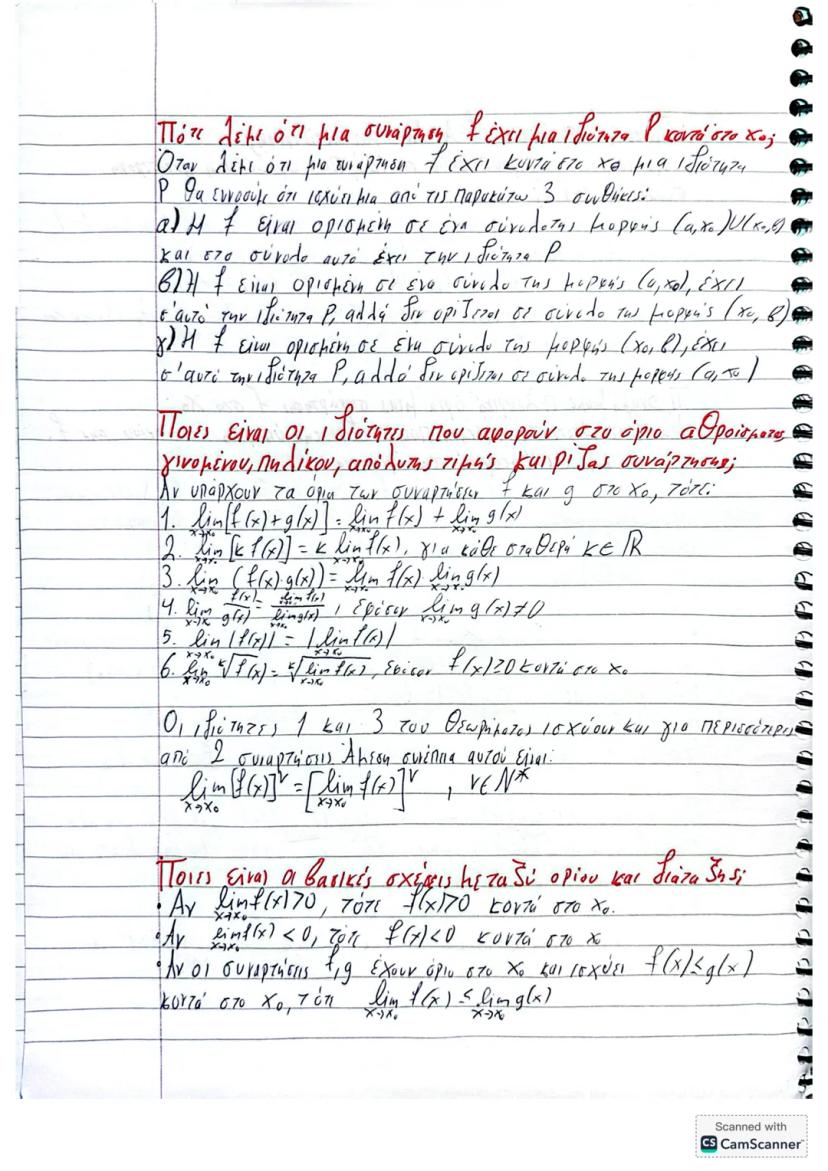 Πότε λέμε ότι μια συνάρτηση f έχει μια ιδιότητα P κοντά στο x₀;
Όταν λέμε ότι μια συνάρτηση f έχει κοντά στο x₀ μια ιδιότητα
P θα εννοούμε ότι ισχύει μια από τις παρακάτω 3 συνθήκες:
α) Η f είναι ορισμένη σε ένα σύνολο της μορφής (α,x₀)∪(x₀,β)
και στο σύνολο αυτό έχει την ιδιότητα P
β) Η f είναι ορισμένη σε ένα σύνολο της μορφής (α,x₀), έχει
σ'αυτό την ιδιότητα P, αλλά δεν ορίζεται σε σύνολο της μορφής (x₀, β)
γ) Η f είναι ορισμένη σε ένα σύνολο της μορφής (x₀, β), έχει
σ'αυτό την ιδιότητα P, αλλά δεν ορίζεται σε σύνολο της μορφής (α, x₀)
Ποιες είναι οι ιδιότητες που αφορούν στο όριο αθροίσματος,
γινομένου, πηλίκου, απόλυτης τιμής και ρίζας συνάρτησης;
Αν υπάρχουν τα όρια των συναρτήσεων f και g στο x₀, τότε:
1. lim_{x→x₀}[f(x)+g(x)] = lim_{x→x₀} f(x) + lim_{x→x₀} g(x)
2. lim_{x→x₀}[κ f(x)] = κ lim_{x→x₀} f(x), για κάθε σταθερά κ∈ℝ
3. lim_{x→x₀} (f(x)·g(x)) = lim_{x→x₀} f(x) lim_{x→x₀} g(x)
4. lim_{x→x₀} f(x)/g(x) = lim_{x→x₀} f(x)/lim_{x→x₀} g(x), εφόσον lim_{x→x₀} g(x)≠0
5. lim_{x→x₀} |f(x)| = |lim_{x→x₀} f(x)|
6. lim_{x→x₀} ᵏ√f(x) = ᵏ√lim_{x→x₀} f(x), εφόσον f(x)≥0 κοντά στο x₀
Οι ιδιότητες 1 και 3 του θεωρήματος ισχύουν και για περισσότερες
από 2 συναρτήσεις Άμεση συνέπεια αυτού είναι:
lim_{x→x₀}[f(x)]^ν = [lim_{x→x₀} f(x)]^ν , ν∈N*
Ποιες είναι οι βασικές σχέσεις μεταξύ ορίου και διάταξης;
• Αν lim_{x→x₀} f(x)>0, τότε f(x)>0 κοντά στο x₀.
• Αν lim_{x→x₀} f(x) <0, τότε f(x)<0 κοντά στο x
• Αν οι συναρτήσεις f,g έχουν όριο στο x₀ και ισχύει f(x)≤g(x)
κοντά στο x₀, τότε lim_{x→x₀} f(x) ≤ lim_{x→x₀} g(x)
Scanned with
CS CamScanner